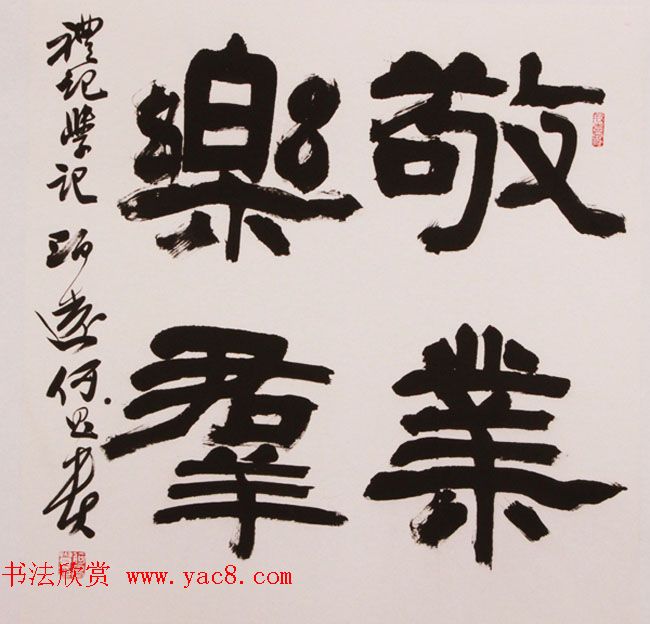 敬業
樂羣
禮記學記 何
书法欣赏 www.yac8.com